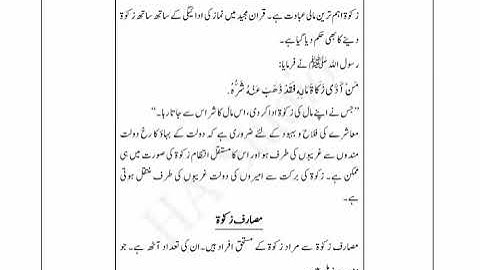 زکوٰۃ اہم ترین مالی عبادت ہے۔ قرآن مجید میں نماز کی ادائیگی کے ساتھ ساتھ زکوٰۃ
دینے کا بھی حکم دیا گیا ہے۔
رسول اللہ ﷺ نے فرمایا:
مَنْ اَدّٰی زَکَاۃَ مَالِہٖ فَقَدْ ذَھَبَ عَنْہُ شَرُّہٗ۔
"جس نے اپنے مال کی زکوٰۃ ادا کر دی، اس مال کا شر اس سے جاتا رہا۔"
معاشرے کی فلاح و بہبود کے لئے ضروری ہے کہ دولت کے بہاؤ کا رخ دولت
مندوں سے غریبوں کی طرف ہو اور اس کا مستقل انتظام زکوٰۃ کی صورت میں ہی
ممکن ہے۔ زکوٰۃ کی برکت سے امیروں کی دولت غریبوں کی طرف منتقل ہوتی
ہے۔
مصارف زکوٰۃ
مصارف زکوٰۃ سے مراد زکوٰۃ کے مستحق افراد ہیں۔ ان کی تعداد آٹھ ہے۔ جو